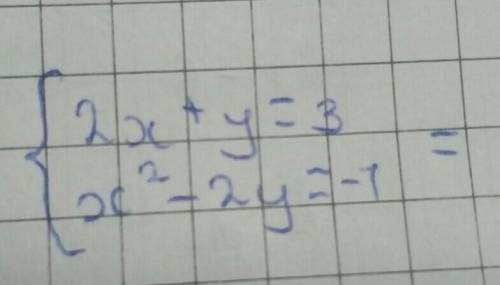 2x + y = 3
x² - 2y = -1 =